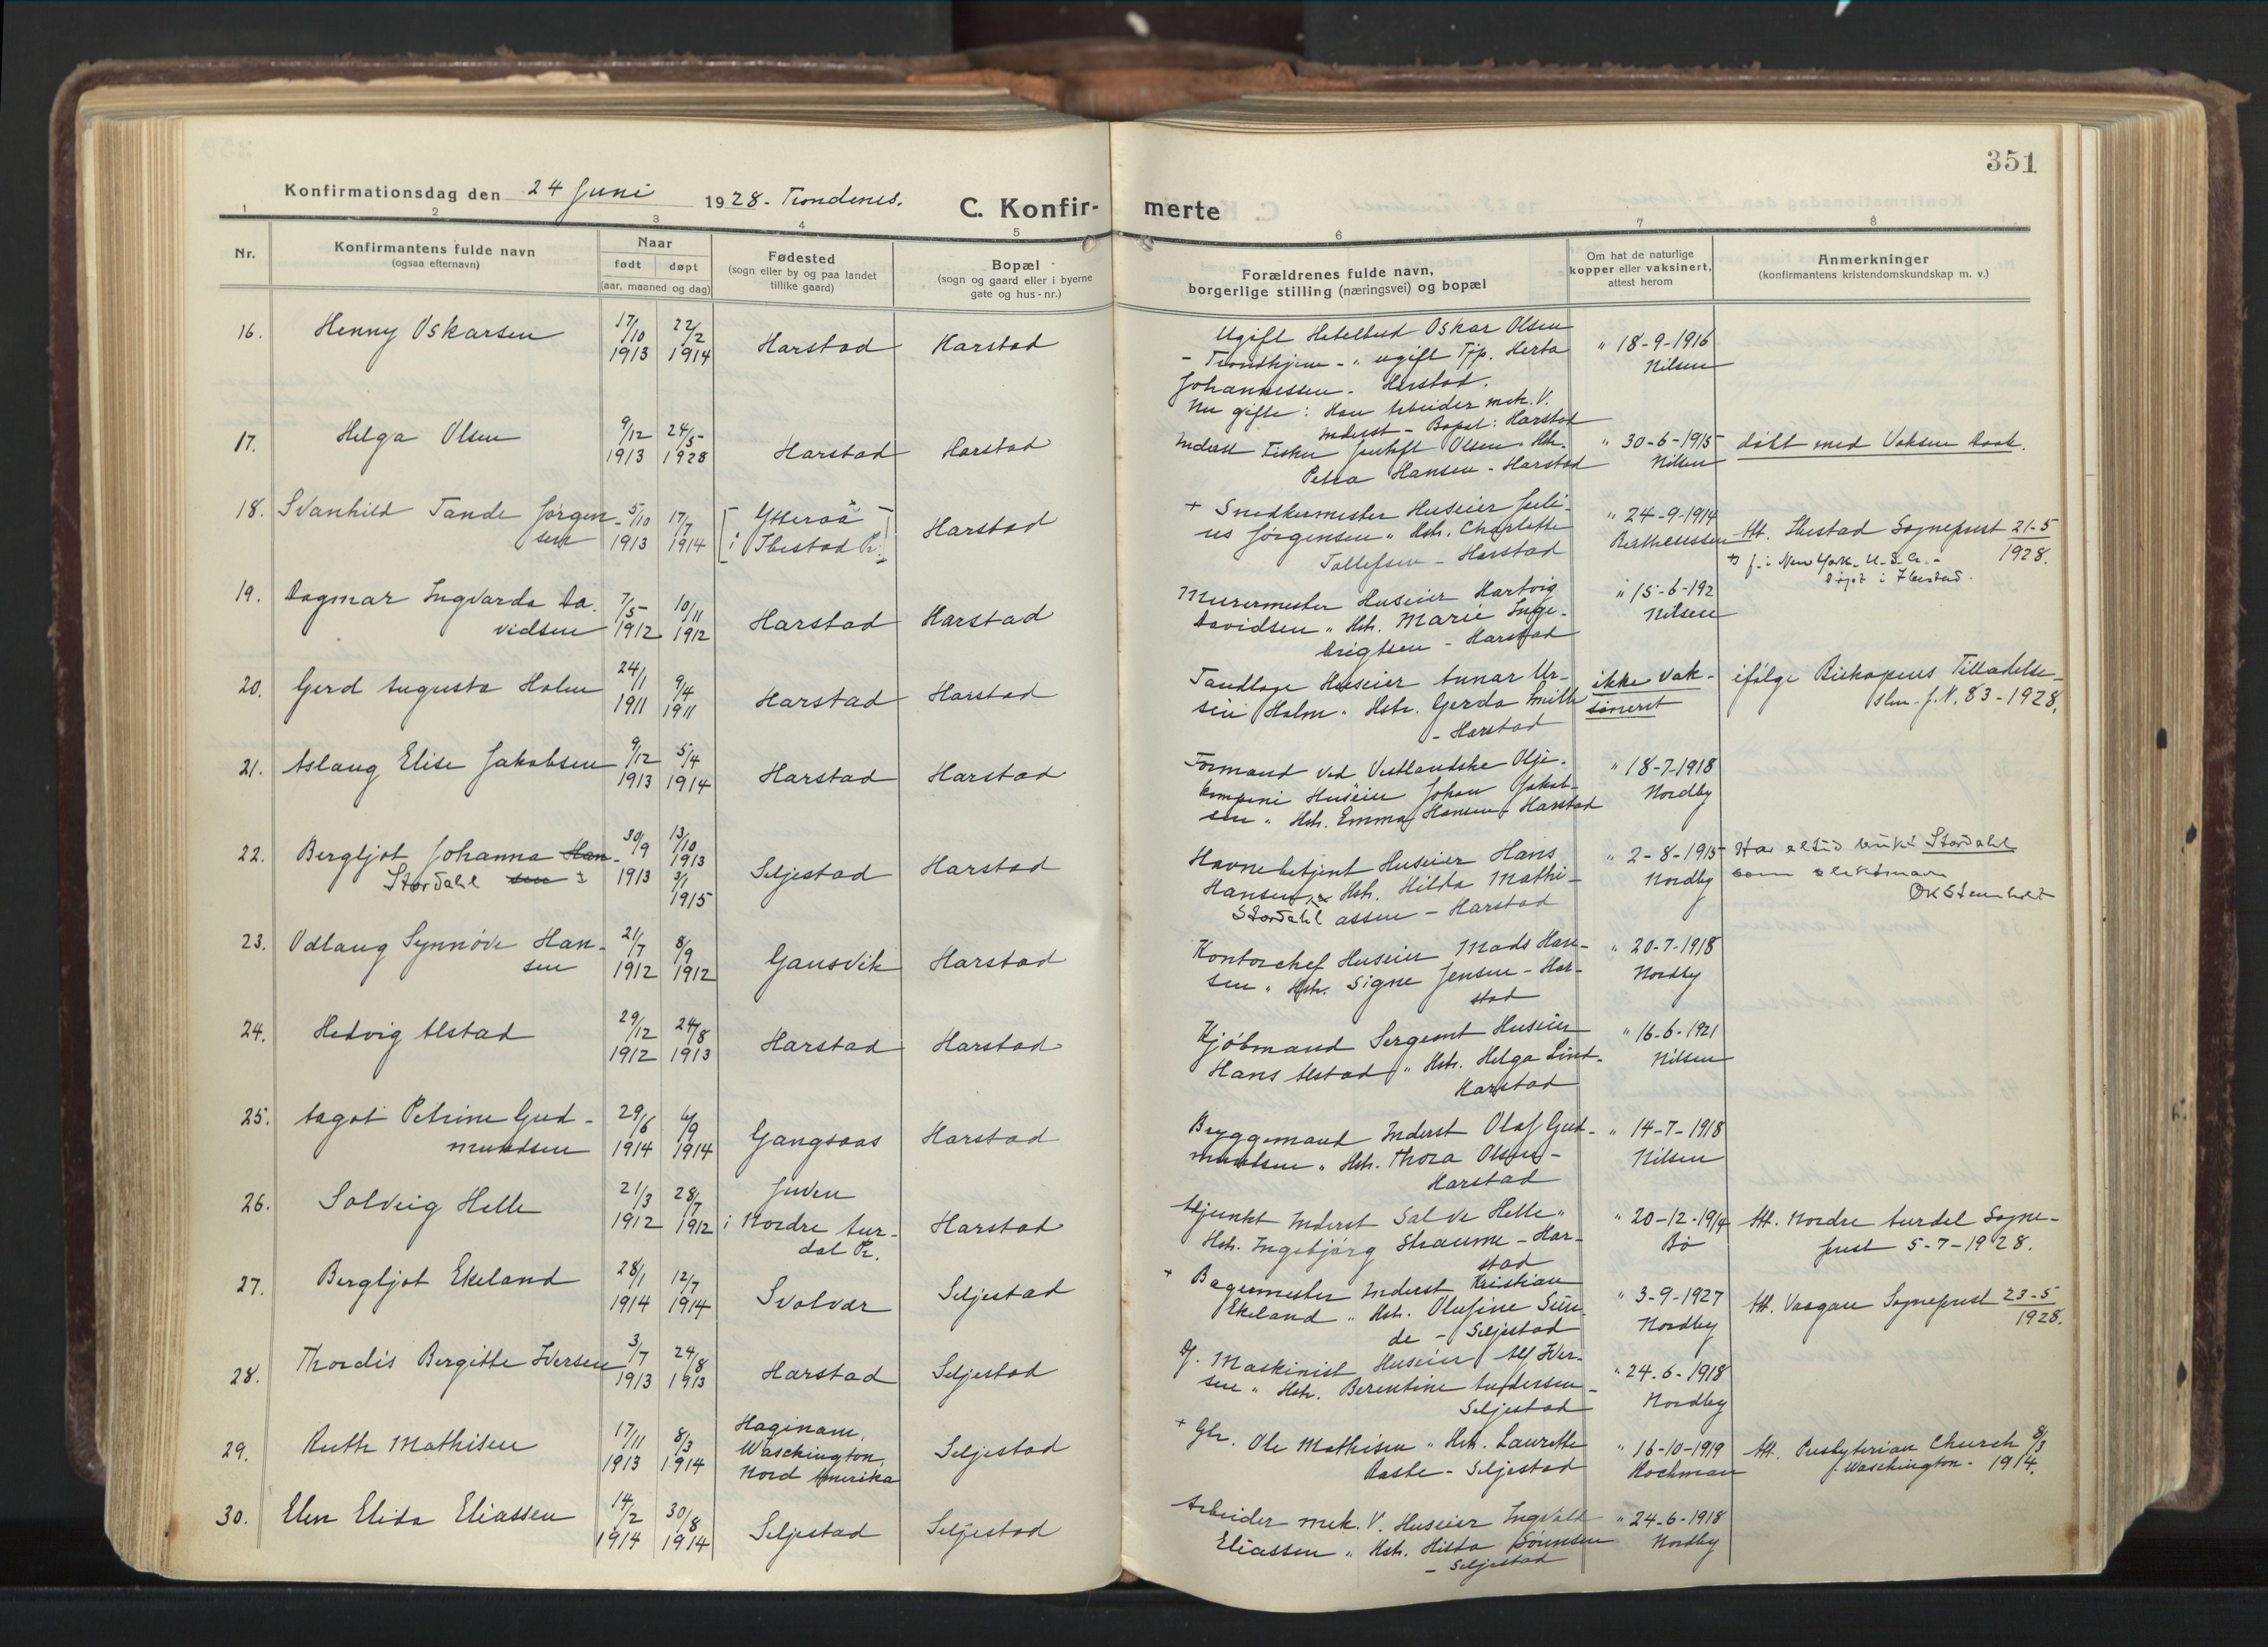 351
Konfirmationsdag den 24 Juni 1928. Trondenes.
C. Konfir- merte
1 2 3 4 5 6 7 8
Nr.
Konfirmantens fulde navn
(ogsaa efternavn)
Naar
født døpt
(aar, maaned og dag)
Fødested
(sogn eller by og paa landet
tillike gaard)
Bopæl
(sogn og gaard eller i byerne
gate og hus-nr.)
Forældrenes fulde navn,
borgerlige stilling (næringsvei) og bopæl
Om hat de naturlige
kopper eller vaksinert,
attest herom
Anmerkninger
(konfirmantens kristendomskundskap m. v.)
16. Henny Oskarsen 17/10 1913 22/2 1914 Harstad Harstad
Ugift Oskar Olsen
- Trondhjem - " ugift Tjp. Herta
Johannessen - Harstad.
Nu gifte: Han Arbeider mek. V.
Inderst - Bopæl: Harstad
" 18-9-1916
Nilsen
17. Helga Olsen 9/12 1913 24/5 1928 Harstad Harstad
Inderst Fisker Olsen " Hstr.
Petra Hansen - Harstad
" 30-6-1915
Nilsen
døbt med Voksen Daab.
18. Svanhild Tande Jørgen-
sen
5/10 1913 17/7 1914
[Ytteraa
i Ibestad Pr.]
Harstad
+ Snedkermester Huseier Juli-
us Jørgensen " Hstr. Charlotte
Tollefsen - Harstad
" 24-9-1914
Bertheussen
Att. Ibestad Sogneprest 21-5
1928.
f. i New York - U.S.A. -
Døpt i Ibestad.
19. Dagmar Ingvarda Da-
vidsen
7/5 1912 10/11 1912 Harstad Harstad
Murermester Huseier Hartvig
Davidsen " Hstr. Marie Inge-
brigtsen - Harstad
" 15-6-192
Nilsen
20. Gerd Augusta Holm 24/1 1911 9/4 1911 Harstad Harstad
Tandlæge Huseier Gunar Ur-
sin Holm " Hstr. Gerda Smith
- Harstad
ikke vak-
sineret
ifølge Biskopens Tilladelse
J.N. 83-1928.
21. Aslaug Elise Jakobsen 9/12 1913 5/4 1914 Harstad Harstad
Formand ved Vestlandske Olje-
kompani Huseier Johan Jakob-
sen " Hstr. Emma Hansen - Harstad
" 18-7-1918
Nordby
22. Bergljot Johanna Han-
Stordahl sen
30/9 1913 13/10 1913
3/1 1915
Seljestad Harstad
Havnebetjent Huseier Hans
Hansen " Hstr. Hilda Mathi-
Stordahl assen - Harstad
" 2-8-1915
Nordby
Har altid brukt Stordahl
som slektsnavn
OK Stenholt
23. Odlaug Synnøve Han-
sen
21/7 1912 8/9 1912 Gausvik Harstad
Kontorchef Huseier Mads Han-
sen " Hstr. Signe Jensen - Har-
stad
" 20-7-1918
Nordby
24. Hedvig Alstad 29/12 1912 24/8 1913 Harstad Harstad
Kjøbmand Sergeant Huseier
Hans Alstad " Hstr. Helga Lind-
Harstad
" 16-6-1921
Nilsen
25. Aagot Petrine Gud-
mundsen
29/6 1914 6/9 1914 Gangsaas Harstad
Bryggemand Inderst Olaf Gud-
mundsen " Hstr. Thora Olsen -
Harstad
" 14-7-1918
Nilsen
26. Solveig Helle 21/3 1912 28/7 1912
i Nordre Aur-
dal Pr.
Harstad
Adjunkt Inderst Salve Helle "
Hstr. Ingebjørg Straume - Har-
stad
" 20-12-1914
Bö
Att. Nordre Aurdal Sogne-
prest 5-7-1928.
27. Bergljot Ekeland 28/1 1914 12/7 1914 Svolvær Seljestad
+ Bagermester Inderst Kristian
Ekeland " Hstr. Olufine Sun-
de - Seljestad
" 3-9-1927
Nordby
Att. Vaagan Sogneprest 23-5
1928.
28. Thordis Bergitte Iversen 3/7 1913 24/8 1913 Harstad Seljestad
Maskinist Huseier Alf Iver-
sen " Hstr. Berentine Andersen -
Seljestad
" 24-6-1918
Nordby
29. Ruth Mathisen 17/11 1913 8/3 1914
Haginam,
Waschington,
Nord Amerika
Seljestad
+ Gbr. Ole Mathisen " Hstr. Laurette
Raste - Seljestad
" 16-10-1919
Kochman
Att. Presbyterian Church 8/3
Waschington - 1914.
30. Elen Elida Eliassen 14/2 1914 30/8 1914 Seljestad Seljestad
Arbeider mek. V. Huseier Ingvald
Eliassen " Hstr. Hilda Sørensen
- Seljestad
" 24-6-1918
Nordby